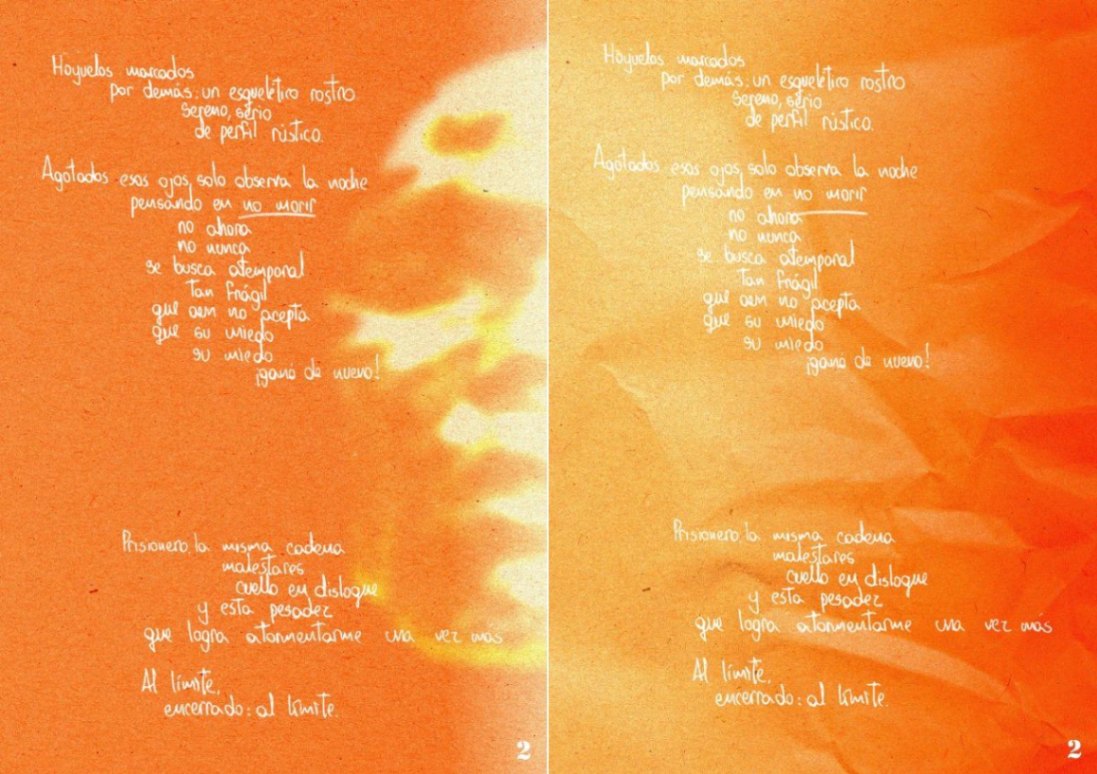 Hoyuelos marcados
por demás: un esquelético rostro
sereno, serio
de perfil rústico.
Agotados esos ojos, solo observa la noche
pensando en no morir
no ahora
no nunca
se busca atemporal
tan frágil
que aun no acepta
que su miedo
su miedo
¡ganó de nuevo!
Prisionero la misma cadena
malestares
cuello en disloque
y esta pesadez
que logra atormentarme una vez más
Al límite,
encerrado: al límite.
2
Hoyuelos marcados
por demás: un esquelético rostro
sereno, serio
de perfil rústico.
Agotados esos ojos, solo observa la noche
pensando en no morir
no ahora
no nunca
se busca atemporal
tan frágil
que aun no acepta
que su miedo
su miedo
¡ganó de nuevo!
Prisionero la misma cadena
malestares
cuello en disloque
y esta pesadez
que logra atormentarme una vez más
Al límite,
encerrado: al límite.
2